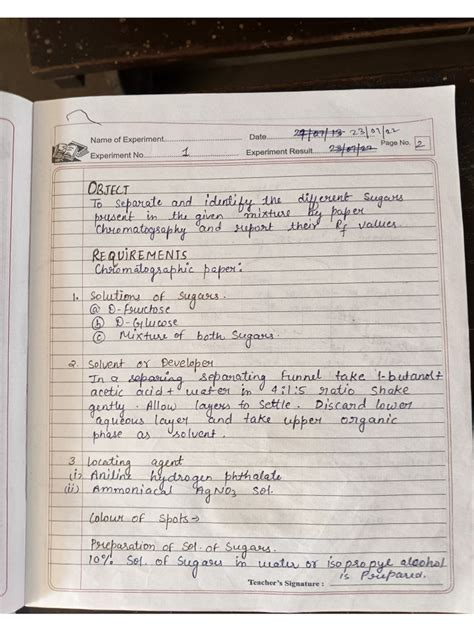 Name of Experiment Date 23/07/22
Experiment No. 1 Experiment Result 23/07/22 Page No. 2
OBJECT
To separate and identify the different sugars
present in the given mixture by paper
Chromatography and report their Rf values.
REQUIREMENTS
Chromatographic paper:
1. Solutions of sugars.
ⓐ D-Fructose
ⓑ D-Glucose
ⓒ Mixture of both Sugars.
2. Solvent or Developer
In a separing separating funnel take 1-butanol+
acetic acid + water in 4:1:5 ratio Shake
gently. Allow layers to settle. Discard lower
aqueous layer and take upper organic
phase as solvent.
3. Locating agent
(i) Aniline hydrogen phthalate
(ii) Ammoniacal AgNO3 Sol.
Colour of Spots →
Preparation of Sol. of Sugars.
10% Sol. of Sugars in water or isopropyl alcohol
is Prepared.
Teacher's Signature :